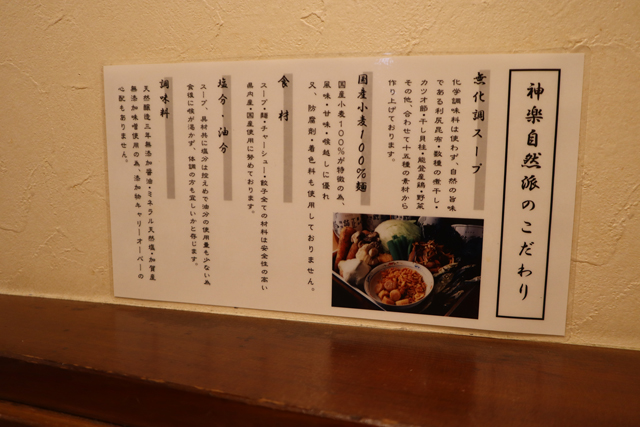 神楽自然派のこだわり
無化調スープ
化学調味料は使わず、自然の旨味
である利尻昆布・数種の煮干し・
カツオ節・干し貝柱・能登産鶏・野菜
その他、合わせて十五種の素材から
作り上げております。
国産小麦100%麺
国産小麦100%が特徴の為、
風味・甘味・喉越しに優れ
又、防腐剤・着色料も使用しておりません。
食材
スープ・麺・チャーシュー・餃子全ての材料は安全性の高い
県内産・国産使用に努めております。
塩分・油分
スープ、具材共に塩分は控えめで油分の使用量も少ない為
食後に喉が渇かず、体調の方も宜しいかと存じます。
調味料
天然醸造三年無添加醤油・ミネラル天然塩・加賀産
無添加味噌使用の為、添加物キャリーオーバーの
心配もありません。